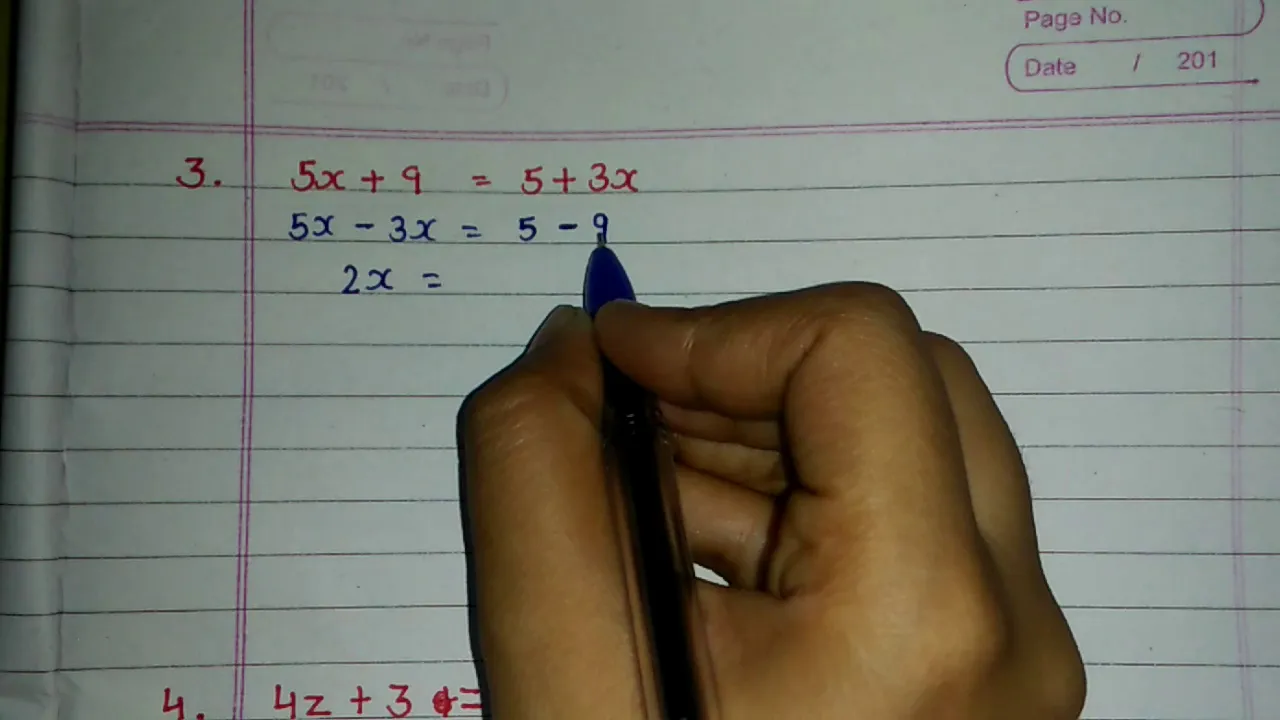 Page No.
Date / 201
3. 5x + 9 = 5 + 3x
5x - 3x = 5 - 9
2x =
4. 4z + 3 =